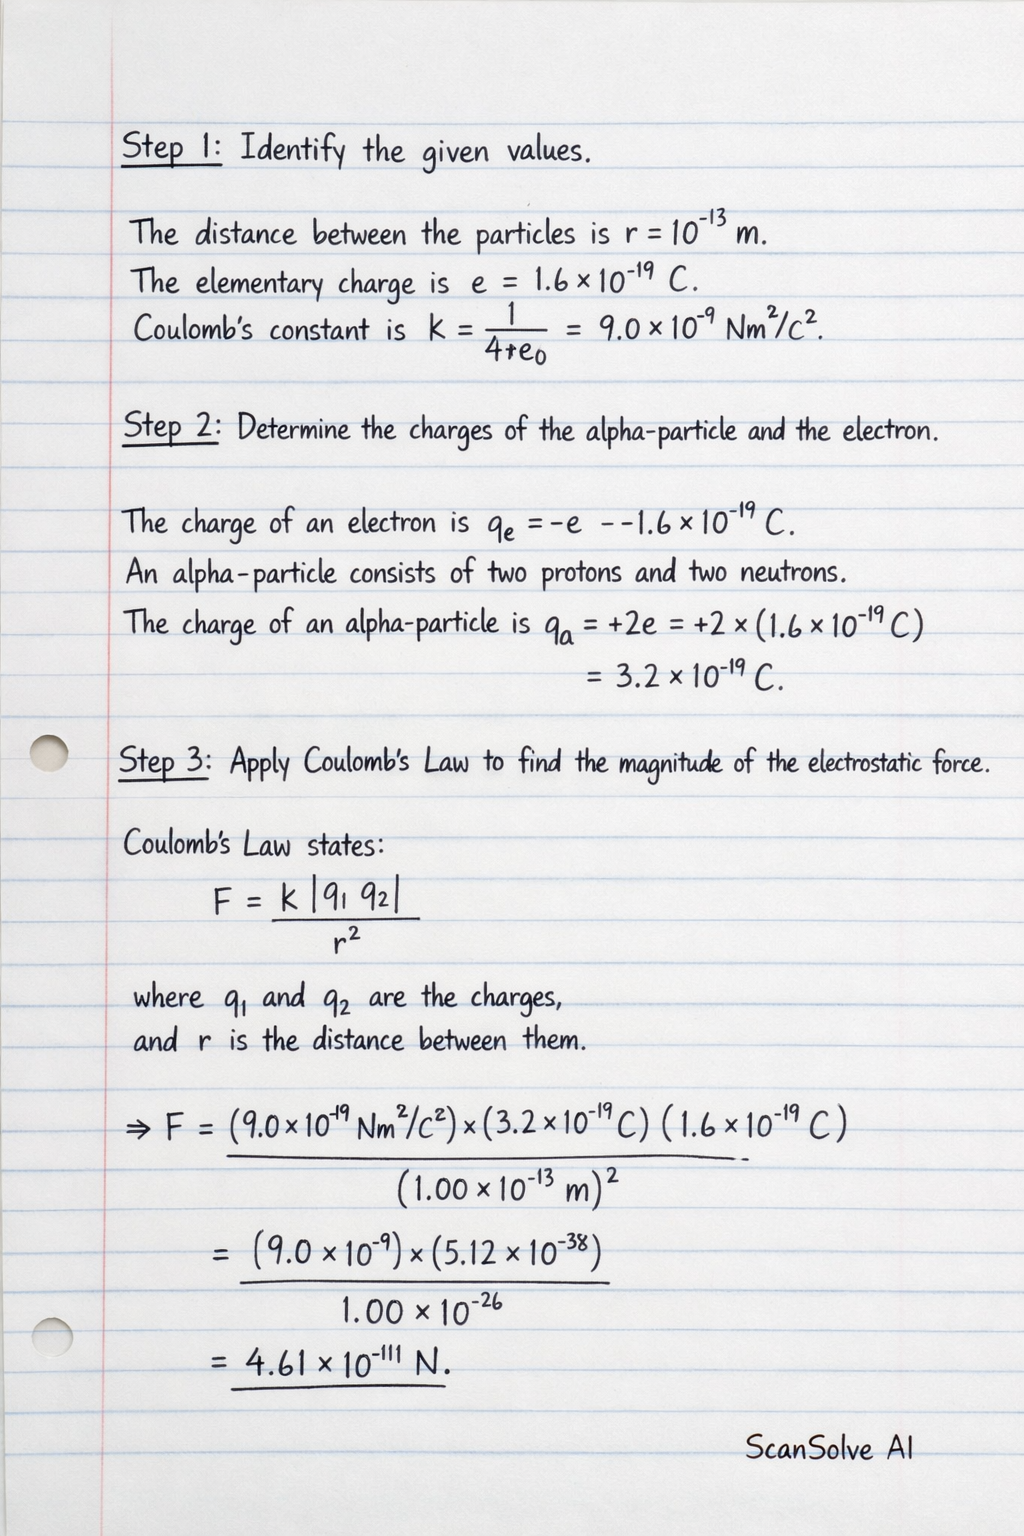 Step 1: Identify the given values.
The distance between the particles is r = 10⁻¹³ m.
The elementary charge is e = 1.6 × 10⁻¹⁹ C.
Coulomb's constant is k = 1/(4+e₀) = 9.0 × 10⁻⁹ Nm²/C².
Step 2: Determine the charges of the alpha-particle and the electron.
The charge of an electron is qₑ = -e --1.6 × 10⁻¹⁹ C.
An alpha-particle consists of two protons and two neutrons.
The charge of an alpha-particle is qₐ = +2e = +2 × (1.6 × 10⁻¹⁹ C)
= 3.2 × 10⁻¹⁹ C.
Step 3: Apply Coulomb's Law to find the magnitude of the electrostatic force.
Coulomb's Law states:
F = k |q₁ q₂|
r²
where q₁ and q₂ are the charges,
and r is the distance between them.
⇒ F = (9.0 × 10⁻¹⁹ Nm²/C²) × (3.2 × 10⁻¹⁹ C) (1.6 × 10⁻¹⁹ C)
(1.00 × 10⁻¹³ m)²
= (9.0 × 10⁻⁹) × (5.12 × 10⁻³⁸)
1.00 × 10⁻²⁶
= 4.61 × 10⁻¹¹¹ N.
ScanSolve AI